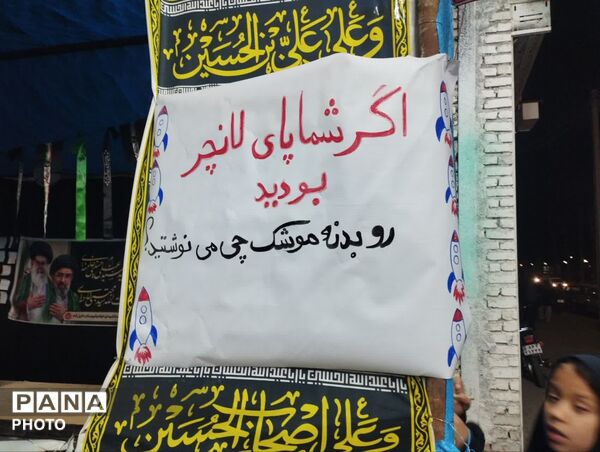 وَعَلىٰ عَلِیِّ بْنِ الْحُسَیْنِ
اگر شما پای لانچر
بودید
رو بدنه موشک چی می نوشتید؟
وَعَلىٰ اَصْحابِ الْحُسَیْنِ
PANA
PHOTO